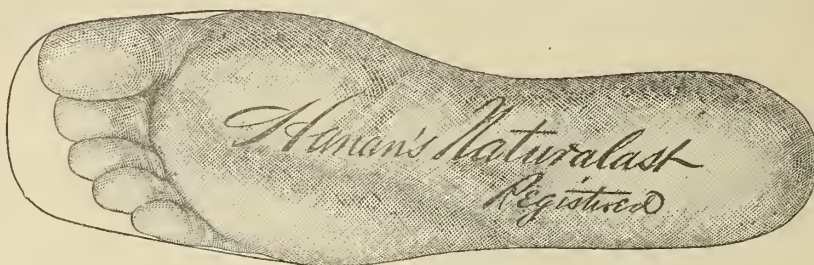 Hanan's Naturalast
Registered